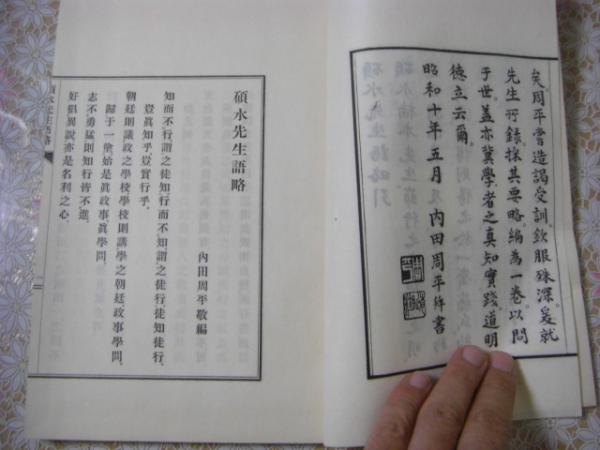 矣。周平嘗造謁受訓。欽服殊深。爰就
先生所錄。採其要略。編爲一卷。以問
于世。蓋亦冀學者之真知實踐。道明
德立云爾。
昭和十年五月 内田周平幷書
碩水先生語略
内田周平敬編
知而不行、謂之徒知、行而不知、謂之徒行、徒知徒行、
豈眞知乎、豈實行乎、
朝廷則議政之學校、學校則講學之朝廷、政事學問、
歸于一途、始是眞政事眞學問、
志不勇猛、則知行皆不進、
好倡異說、亦是名利之心、
碩水先生語略